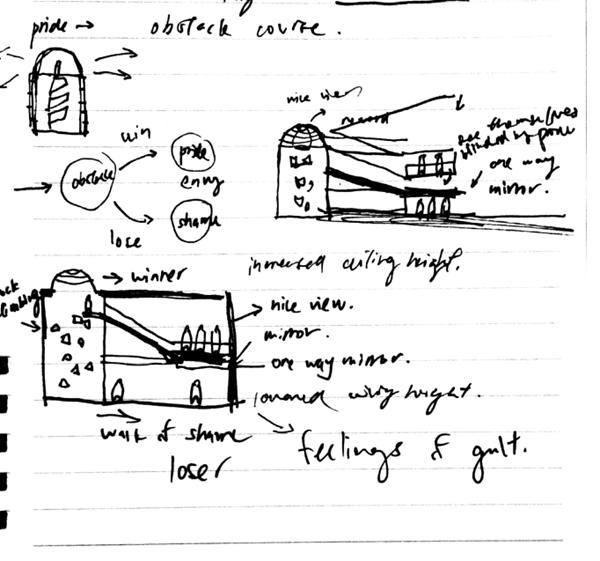 pride → obstacle course.
nice view
reward
win
obstacle
pride
envy
shame
lose
blinded by pride
one way
mirror.
increased ceiling height.
→ winner
climbing
→ nice view.
mirror.
one way mirror.
lowered ceiling height.
walk of shame
loser
feelings of guilt.